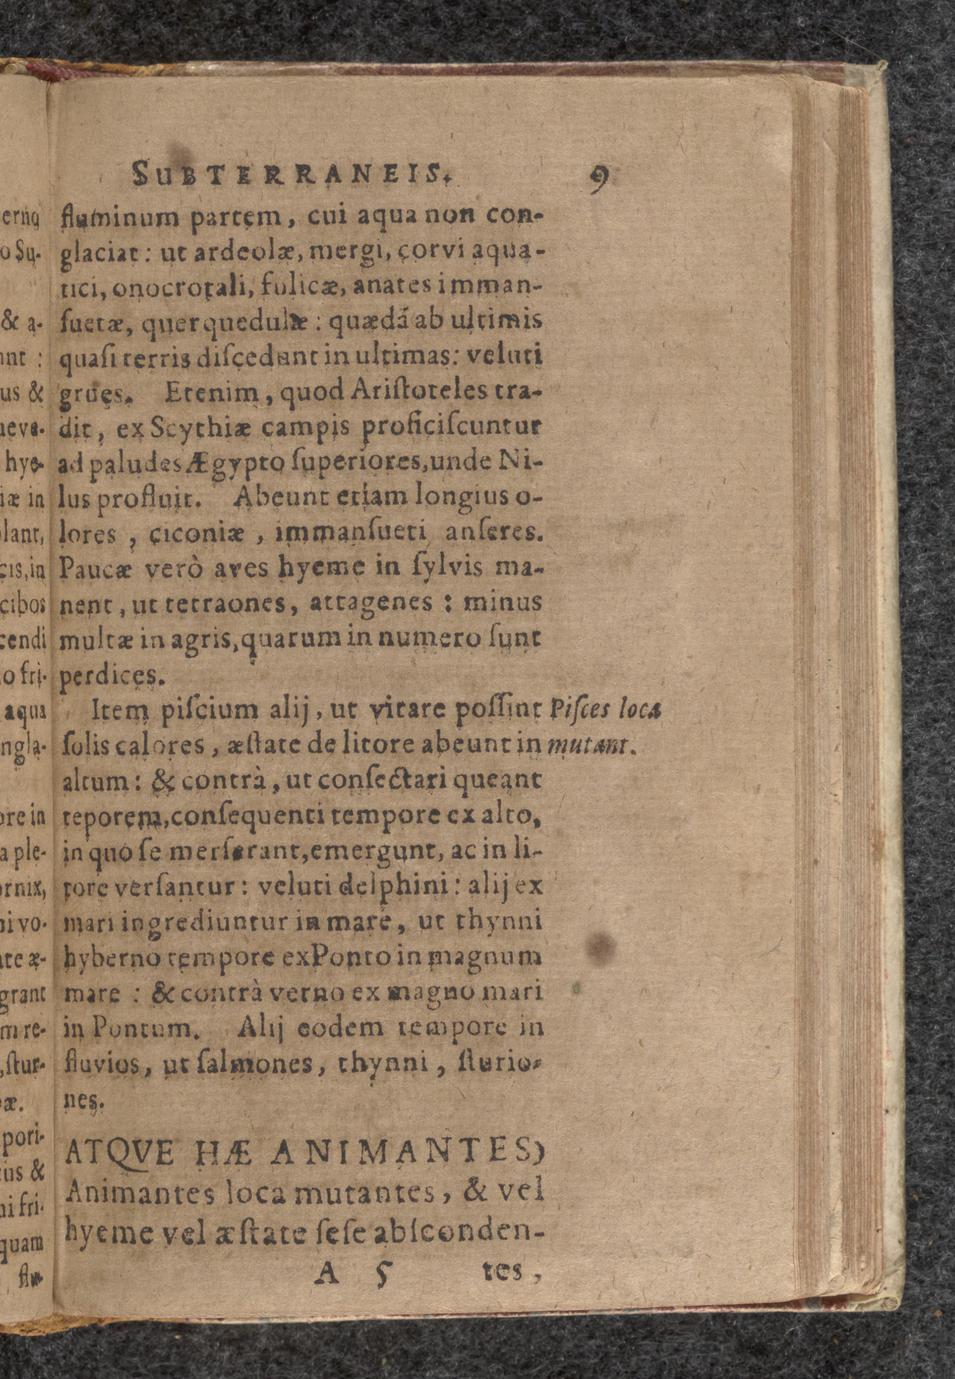 SUBTERRANEIS. 9
fluminum partem, cui aqua non con-
glaciat: ut ardeolæ, mergi, corvi aqua-
tici, onocrotali, fulicæ, anates imman-
ſuetæ, querquedulæ: quædã ab ultimis
quaſi terris diſcedunt in ultimas: veluti
grues. Etenim, quod Ariſtoteles tra-
dit, ex Scythiæ campis proficiſcuntur
ad paludes Ægypto ſuperiores, unde Ni-
lus profluit. Abeunt etiam longius o-
lores, ciconiæ, immanſueti anſeres.
Paucæ verò aves hyeme in ſylvis ma-
nent, ut tetraones, attagenes: minus
multæ in agris, quarum in numero ſunt
perdices.
Item piſcium alij, ut vitare poſſint Piſces loca
ſolis calores, æſtate de litore abeunt in mutant.
altum: & contrà, ut conſectari queant
teporem, conſequenti tempore ex alto,
in quo ſe merſerant, emergunt, ac in li-
tore verſantur: veluti delphini: alij ex
mari ingrediuntur in mare, ut thynni
hyberno tempore ex Ponto in magnum
mare: & contrà verno ex magno mari
in Pontum. Alij eodem tempore in
fluvios, ut ſalmones, thynni, ſturio-
nes.
ATQVE HÆ ANIMANTES)
Animantes loca mutantes, & vel
hyeme vel æſtate ſeſe abſconden-
A 5 tes,